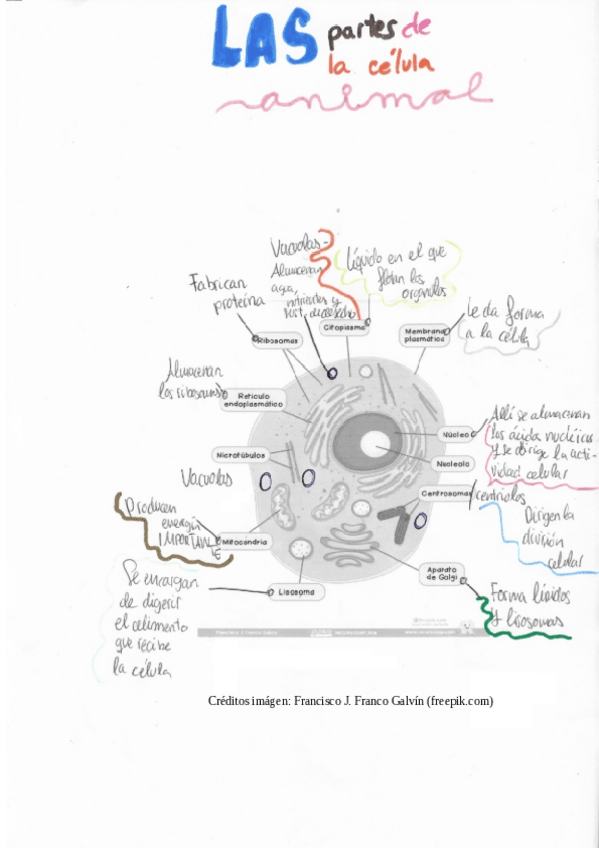 LAS partes de
la célula
animal
Vacuolas-
Almacenan
agua,
nutrientes y
sust. de desecho
Líquido en el que
flotan los
orgánulos
Fabrican
proteína
Le da forma
a la célula
Citoplasma
Ribosomas
Membrana
plasmática
Almacenan
los ribosomas
Retículo
endoplasmático
Allí se almacenan
los ácidos nucléicos
y se dirige la acti-
vidad celular
Núcleo
Nucleolo
Microtúbulos
Vacuolas
Centrosomas/centriolos
Dirigen la
división
celular
Producen
energía
IMPORTANTE
Mitocondria
Aparato
de Golgi
Forma lípidos
y lisosomas
Lisosoma
Se encargan
de digerir
el alimento
que recibe
la célula
Francisco J. Franco Galvín
Créditos imágen: Francisco J. Franco Galvín (freepik.com)